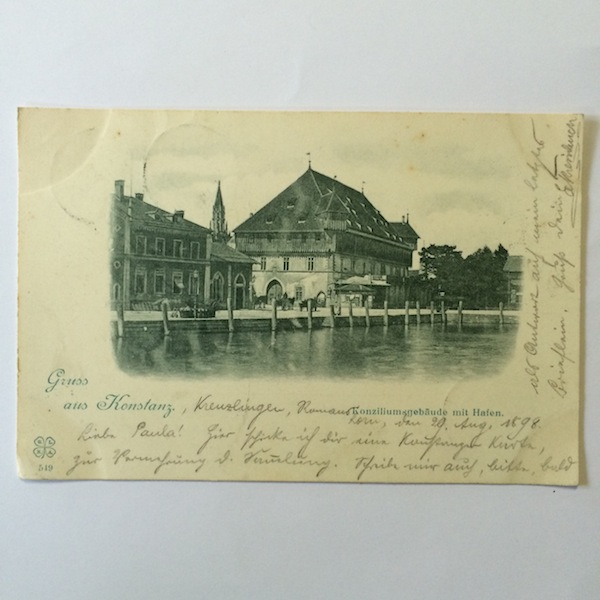 Gruss
aus Konstanz, Kreuzlingen, Romans
Konziliumsgebäude mit Hafen.
horn, den 29. Aug. 1898.
Liebe Paula! Hier schicke ich dir eine Konstanzer Karte,
zur Vermehrung d. Samlung. Schreibe mir auch, bitte, bald
als Antwort auf mein letztes
Brieflein. Gruß Dein
519